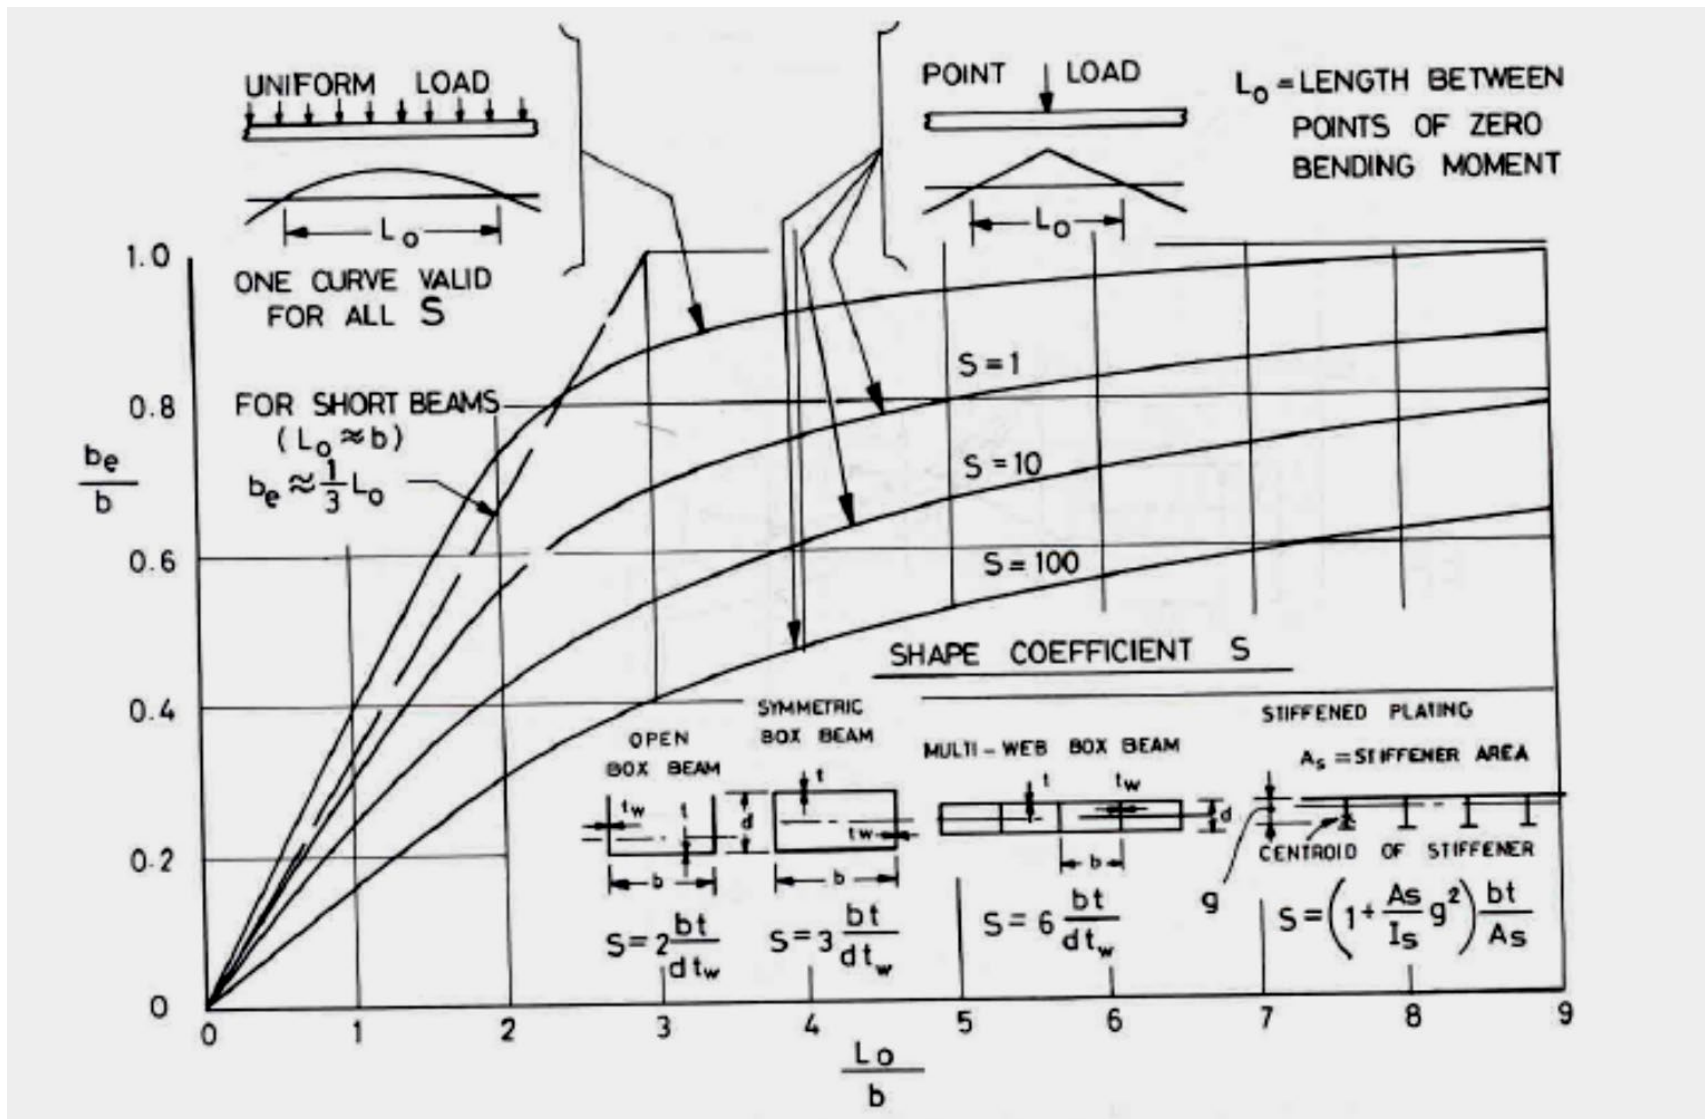 UNIFORM LOAD
L₀
ONE CURVE VALID
FOR ALL S
POINT LOAD
L₀
L₀ = LENGTH BETWEEN
POINTS OF ZERO
BENDING MOMENT
FOR SHORT BEAMS
(L₀ ≈ b)
bₑ ≈ 1/3 L₀
bₑ/b
1.0
0.8
0.6
0.4
0.2
0
S = 1
S = 10
S = 100
SHAPE COEFFICIENT S
OPEN
BOX BEAM
t_w t d
b
S = 2 bt/dt_w
SYMMETRIC
BOX BEAM
t
t_w
b
S = 3 bt/dt_w
MULTI-WEB BOX BEAM
t t_w
d
b
S = 6 bt/dt_w
STIFFENED PLATING
A_s = STIFFENER AREA
CENTROID OF STIFFENER
g
S = (1 + A_s/I_s g²) bt/A_s
0 1 2 3 4 5 6 7 8 9
L₀/b